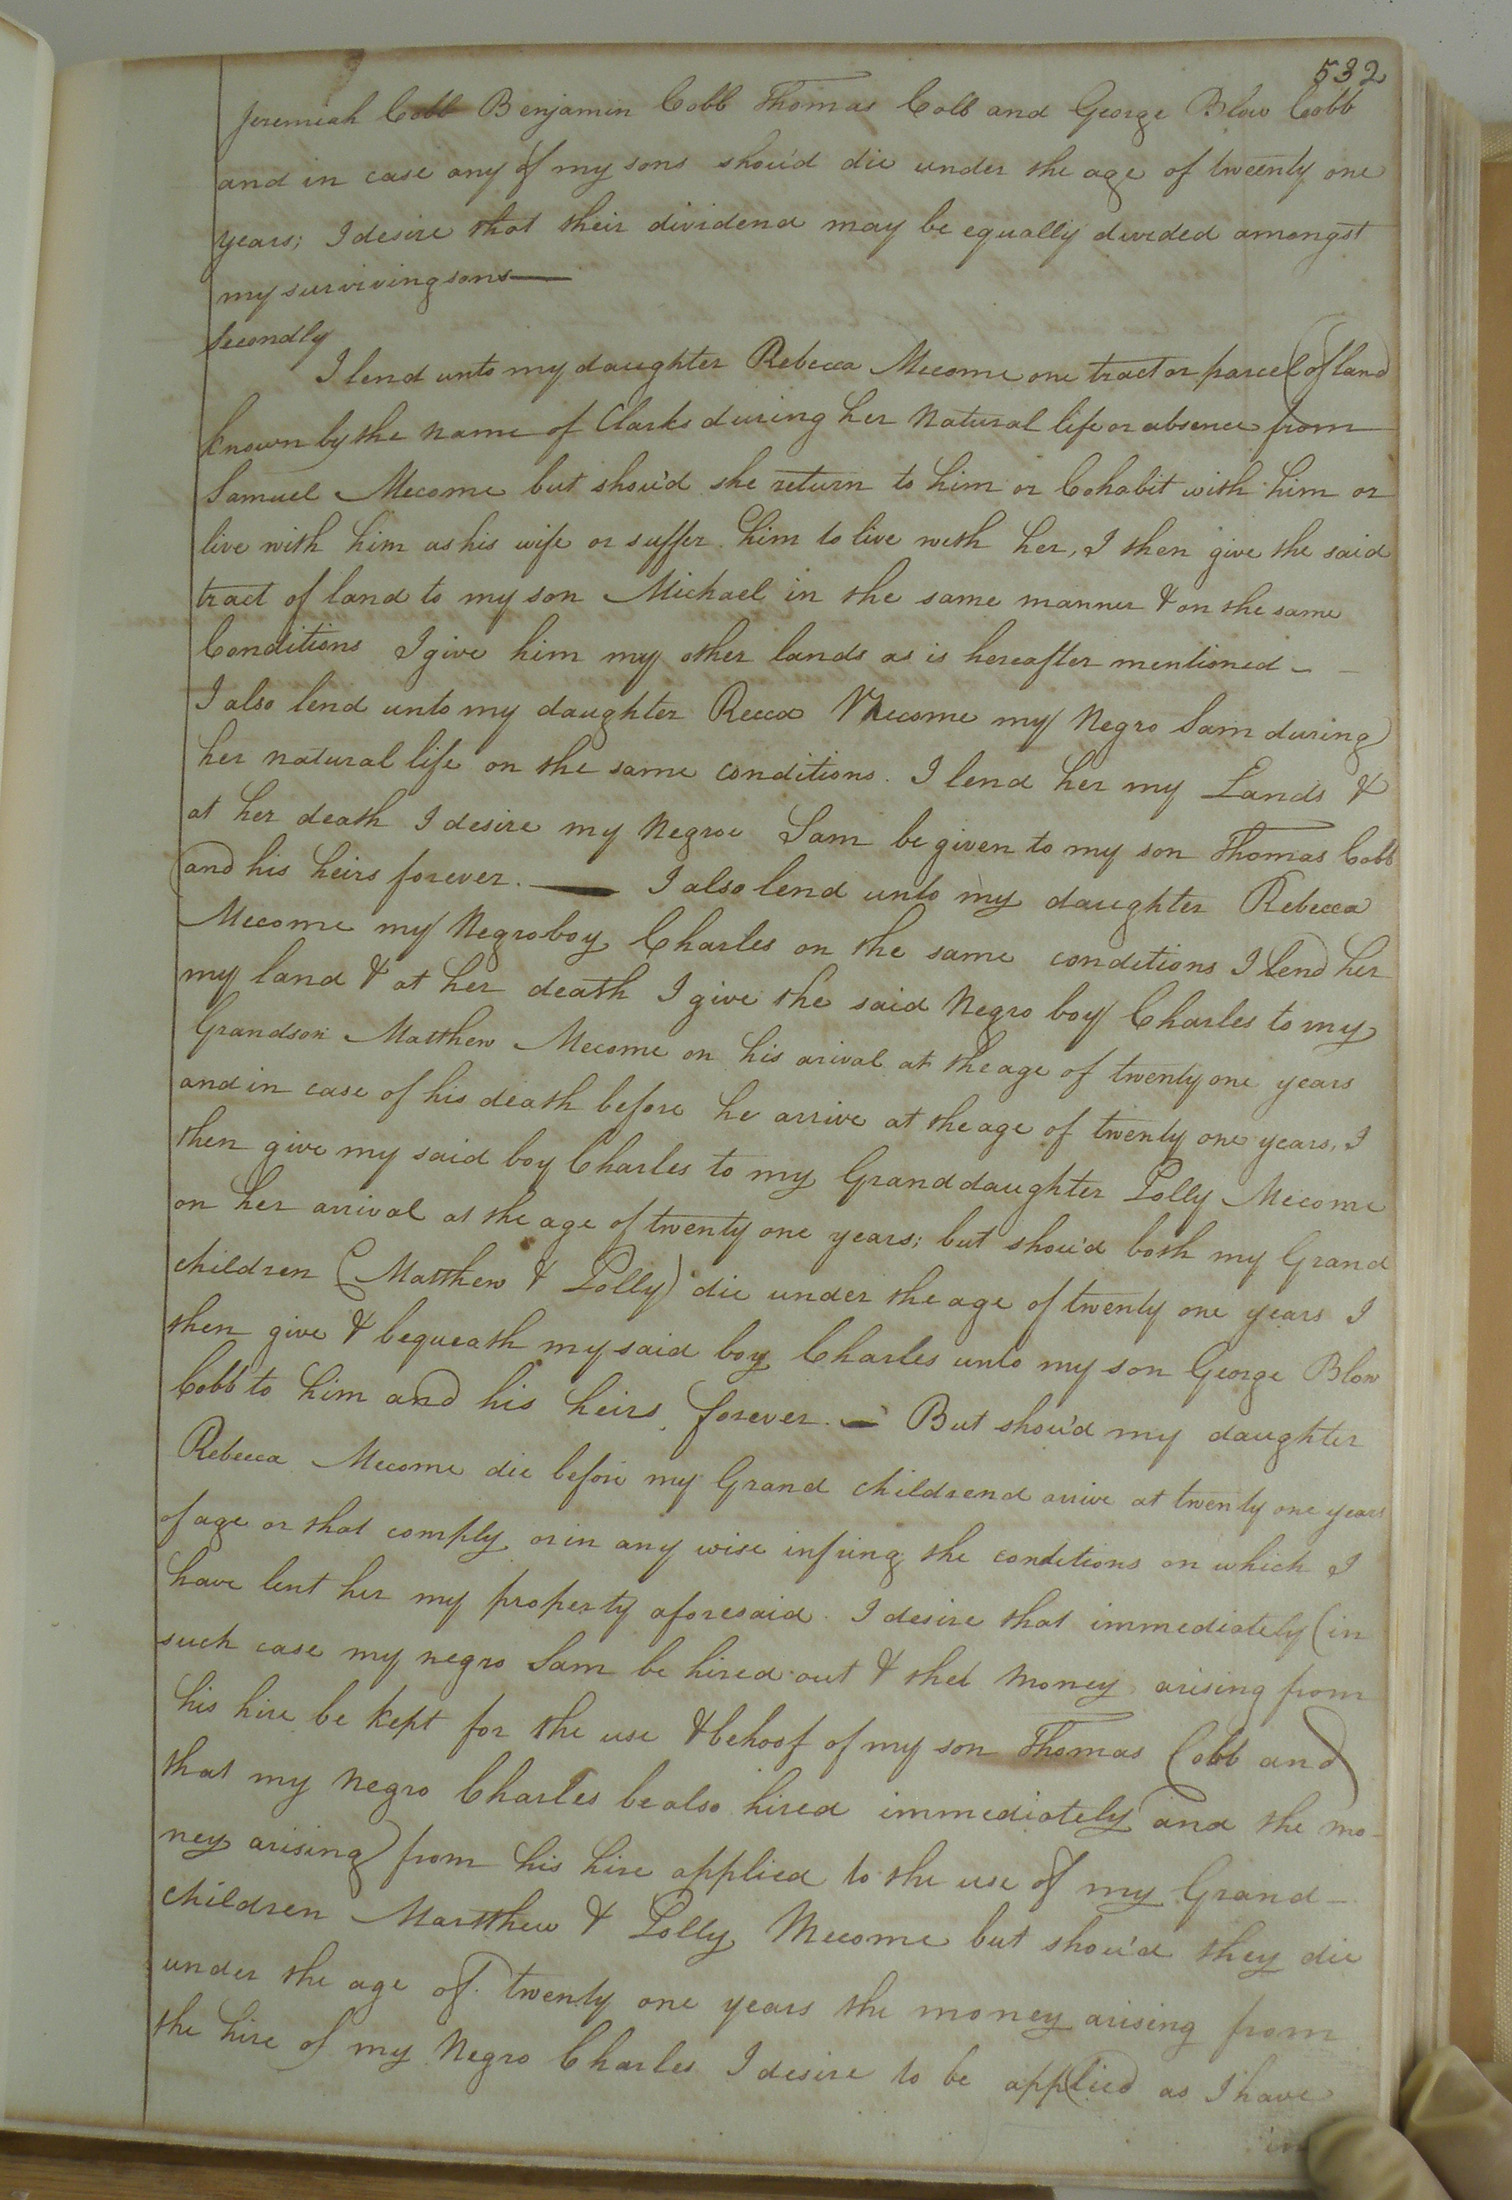 532
Jeremiah Cobb Benjamin Cobb Thomas Cobb and George Blow Cobb
and in case any of my sons shou'd die under the age of tweenty one
years; I desire that their dividend may be equally divided amongst
my surviving sons
Secondly
I lend unto my daughter Rebecca Mecome one tract or parcel of land
known by the name of Clarks during her natural life or absence from
Samuel Mecome but shou'd she return to him or Cohabit with him or
live with him as his wife or suffer him to live with her, I then give the said
tract of land to my son Michael in the same manner & on the same
Conditions I give him my other lands as is hereafter mentioned -
I also lend unto my daughter Recca Mecome my Negro Sam during
her natural life on the same conditions. I lend her my Lands &
at her death I desire my Negroe Sam be given to my son Thomas Cobb
and his heirs forever. — I also lend unto my daughter Rebecca
Mecome my Negro boy Charles on the same conditions I lend her
my land & at her death I give the said Negro boy Charles to my
Grandson Matthew Mecome on his arival at the age of twenty one years
and in case of his death before he arrive at the age of twenty one years, I
then give my said boy Charles to my Granddaughter Polly Mecome
on her arrival at the age of twenty one years; but shou'd both my Grand
children (Matthew & Polly) die under the age of twenty one years I
then give & bequeath my said boy Charles unto my son George Blow
Cobb to him and his heirs forever. — But shou'd my daughter
Rebecca Mecome die before my Grand childrend arive at twenty one years
of age or that comply or in any wise infring the conditions on which I
have lent her my property aforesaid. I desire that immediately (in
such case my negro Sam be hired out & the money arising from
his hire be kept for the use & behoof of my son Thomas Cobb and
that my negro Charles be also hired immediately and the mo-
ney arising from his hire applied to the use of my Grand-
children Martthew & Polly Mecome but shou'd they die
under the age of twenty one years the money arising from
the hire of my Negro Charles I desire to be applied as I have